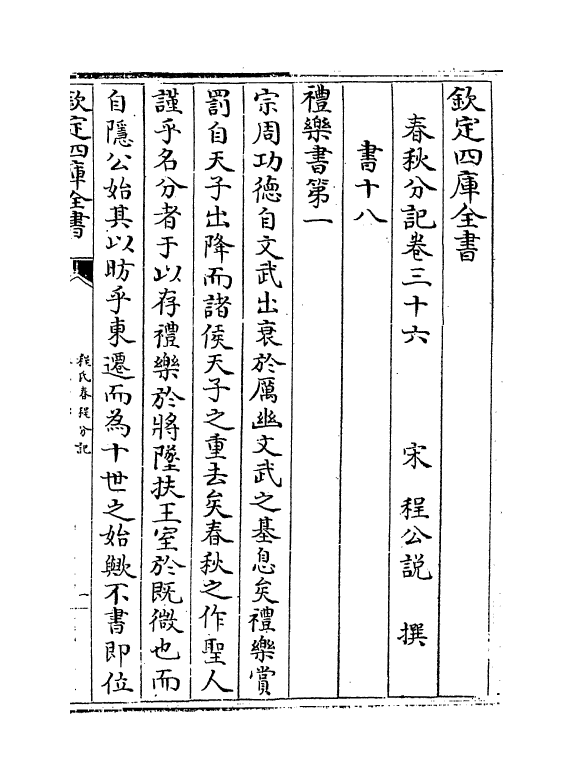 欽定四庫全書
春秋分記卷三十六　宋　程公説　撰
書十八
禮樂書第一
宗周功德自文武出衰於厲幽文武之基息矣禮樂賞
罰自天子出降而諸侯天子之重去矣春秋之作聖人
謹乎名分者于以存禮樂於將墜扶王室於既微也而
自隱公始其以昉乎東遷而為十世之始歟不書即位
欽定四庫全書
程氏春秋分記
一